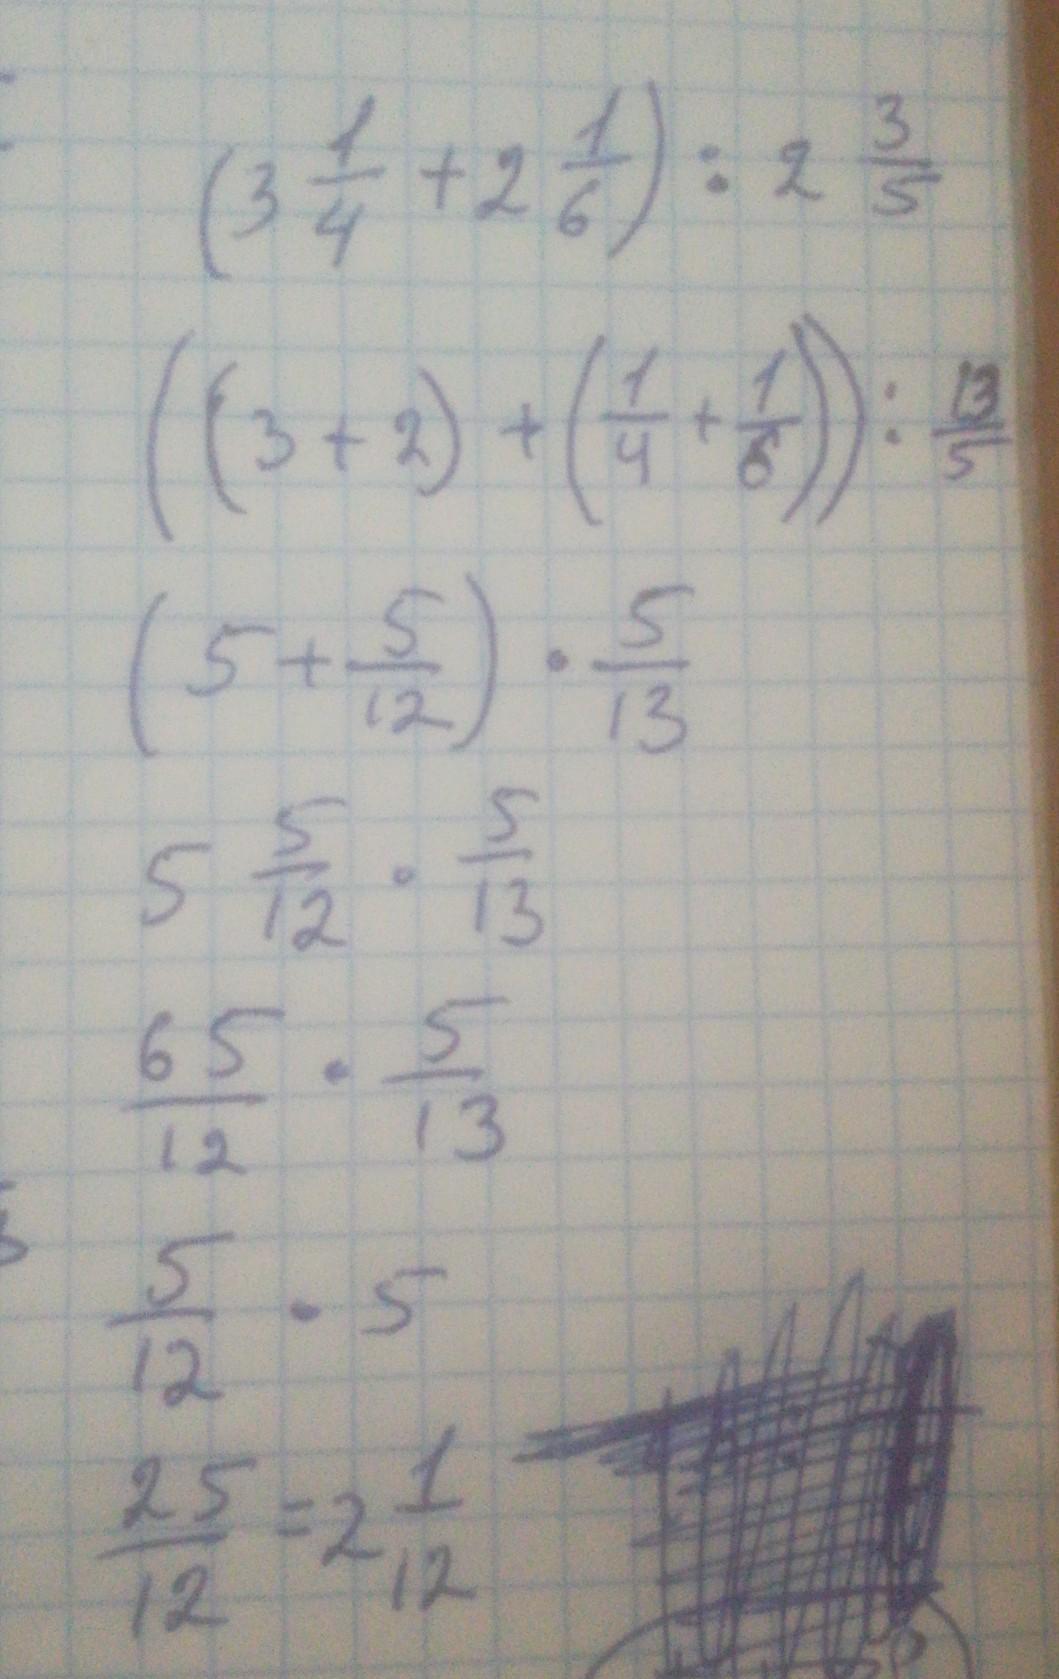 (3 1/4 + 2 1/6) : 2 3/5
((3 + 2) + (1/4 + 1/6)) : 13/5
(5 + 5/12) · 5/13
5 5/12 · 5/13
65/12 · 5/13
5/12 · 5
25/12 = 2 1/12